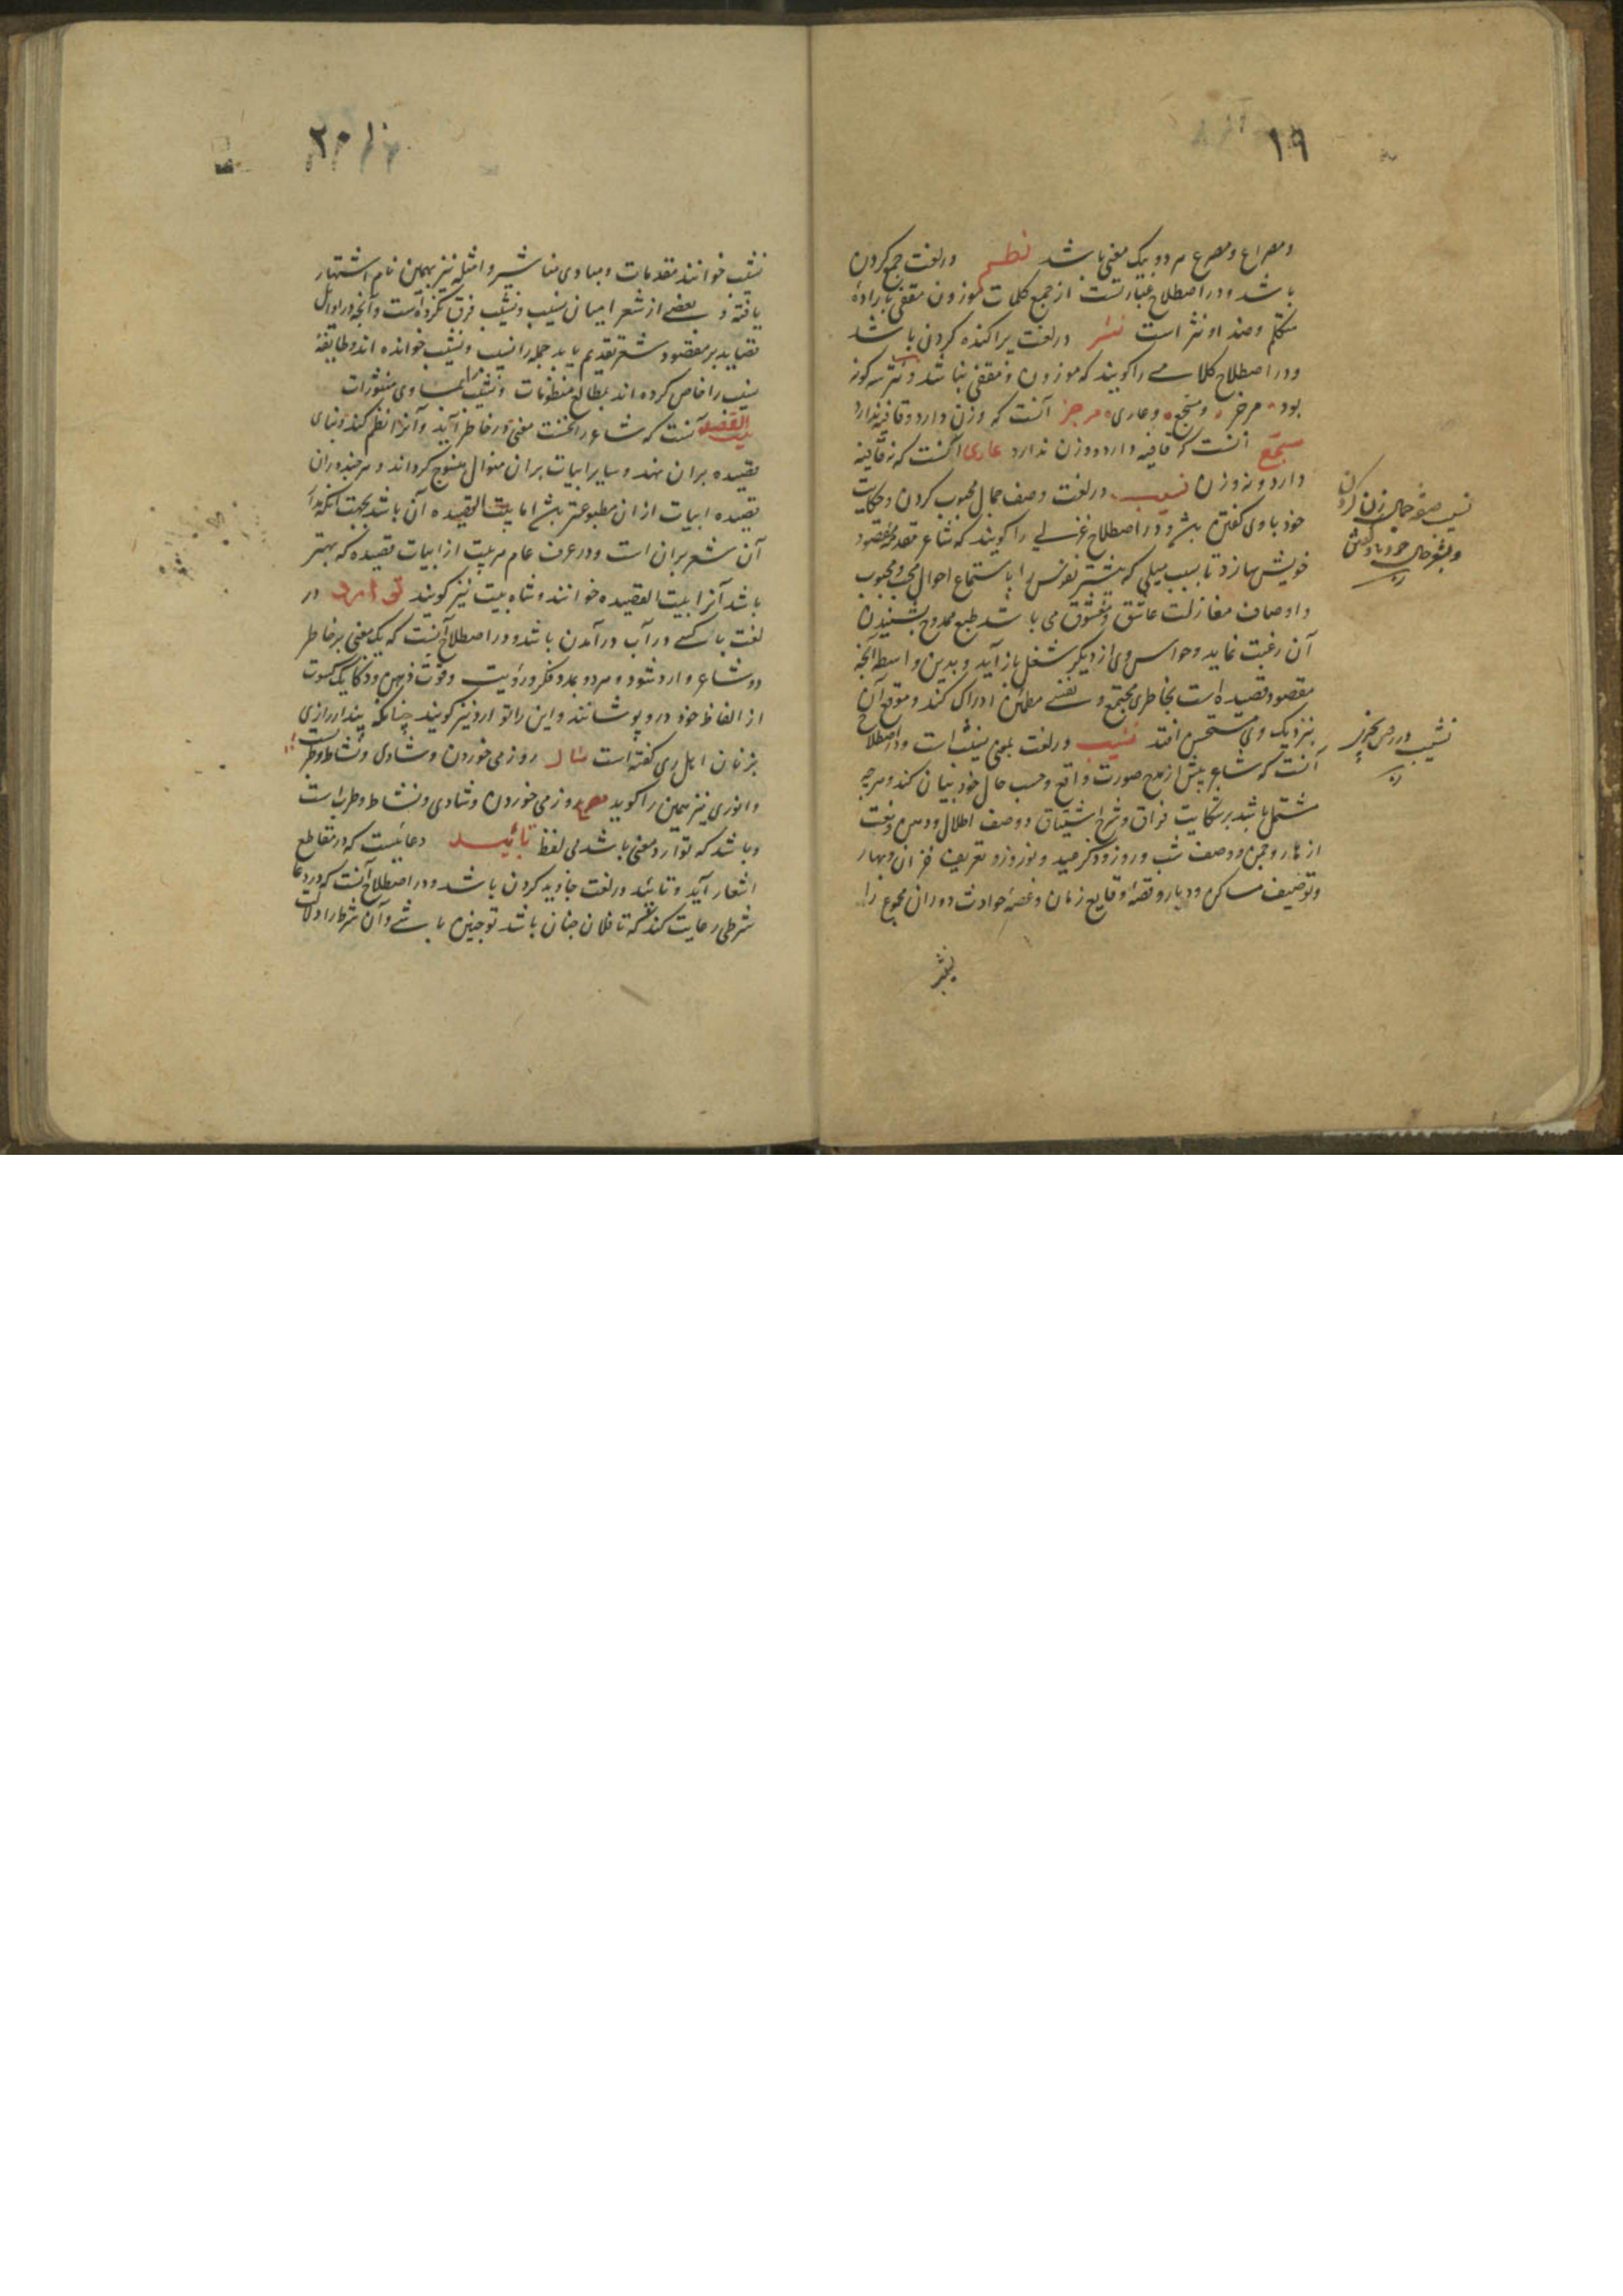 ۱۹
و مصراع و مصرع هر دو بیک معنی باشد نظم در لغت جمع کردن
باشد و در اصطلاح عبارتست از جمع کلمات موزون مقفی بارادهٔ
متکلم و ضد او نثر است نثر در لغت پراکنده کردن باشد
و در اصطلاح کلامی را گویند که موزون و مقفی نباشد و نثر سه گونه
بود مرجز و مسجع و عاری مرجز آنست که وزن دارد و قافیه ندارد
مسجع آنست که قافیه دارد و وزن ندارد عاری آنست که نه قافیه
دارد و نه وزن نسیب در لغت وصف جمال محبوب کردن و حکایت
خود باوی گفتن باشد و در اصطلاح غزلی را گویند که شاعر مقدمه مقصود
خویش سازد تا بسبب میلی که بیشتر نفوس را باستماع احوال محب و محبوب
و اوصاف مغازلت عاشق و معشوق می باشد طبع ممدوح بشنیدن
آن رغبت نماید و حواس وی از دیگر شغل باز آید و بدین واسطه آنچه
مقصود قصیده است بخاطری مجتمع و نفسی مطمئن ادراک کند و موقع آن
بنزدیک وی مستحسن افتد تشبیب در لغت بمعنی نسیب است و در اصطلاح
آنست که شاعر پیش از مدح صورت واقع و حسب حال خود بیان کند و هرچه
مشتمل باشد بر شکایت فراق و شرح اشتیاق و وصف اطلال و دمن و نعت
ازهار و چمن و وصف شب و روز و ذکر عید و نوروز و تعریف خزان و بهار
و توصیف مساکن و دیار و قصهٔ وقایع زمان و غصهٔ حوادث دوران مجموع را
جمال زن کردن
و حال خود با او گفتن
تشبیب
۲۰
تشبیب خوانند مقدمات و مبادی مناشیر و امثله نیز بهمین نام اشتهار
یافته و بعضی از شعرا میان نسیب و تشبیب فرق نکرده است و آنچه در اوایل
قصاید بر مقصود شعر تقدیم یابد جمله را نسیب و تشبیب خوانده اند و طایفهٔ
نسیب را خاص کرده اند بمطالع منظومات و تشبیب را بمبادی منثورات
بیت القصیده آنست که شاعر را نخست معنی در خاطر آید و آنرا نظم کند و بنای
قصیده بران نهد و سایر ابیات بران منوال منسوج گرداند و هرچند دران
قصیده ابیات از ان مطبوعتر باشد اما بیت القصیده آن باشد بجهت آنکه بنای
آن شعر بران است و در عرف عام هر بیت از ابیات قصیده که بهتر
باشد آنرا بیت القصیده خوانند و شاه بیت نیز گویند توارد در
لغت با کسی در آب در آمدن باشد و در اصطلاح آنست که یک معنی بر خاطر
دو شاعر وارد شود و هر دو بمدد فکر و رؤیت و قوت ذهن و ذکا یک کسوت
از الفاظ خود درو پوشانند و این را توارد نیز گویند چنانکه پندار رازی
بزبان اهل ری گفته است مثال روز می خوردن و شادی و نشاط و طربست
و انوری نیز همین را گوید مصرع روز می خوردن و شادی و نشاط و طرب است
و باشد که توارد معنی باشد بی لفظ تأیید دعائیست که در مقاطع
اشعار آید و تأیید در لغت جاوید کردن باشد و در اصطلاح آنست که در دعا
شرطی رعایت کنند که تا فلان چنان باشد تو چنین باشی و آن شرط را دلالت